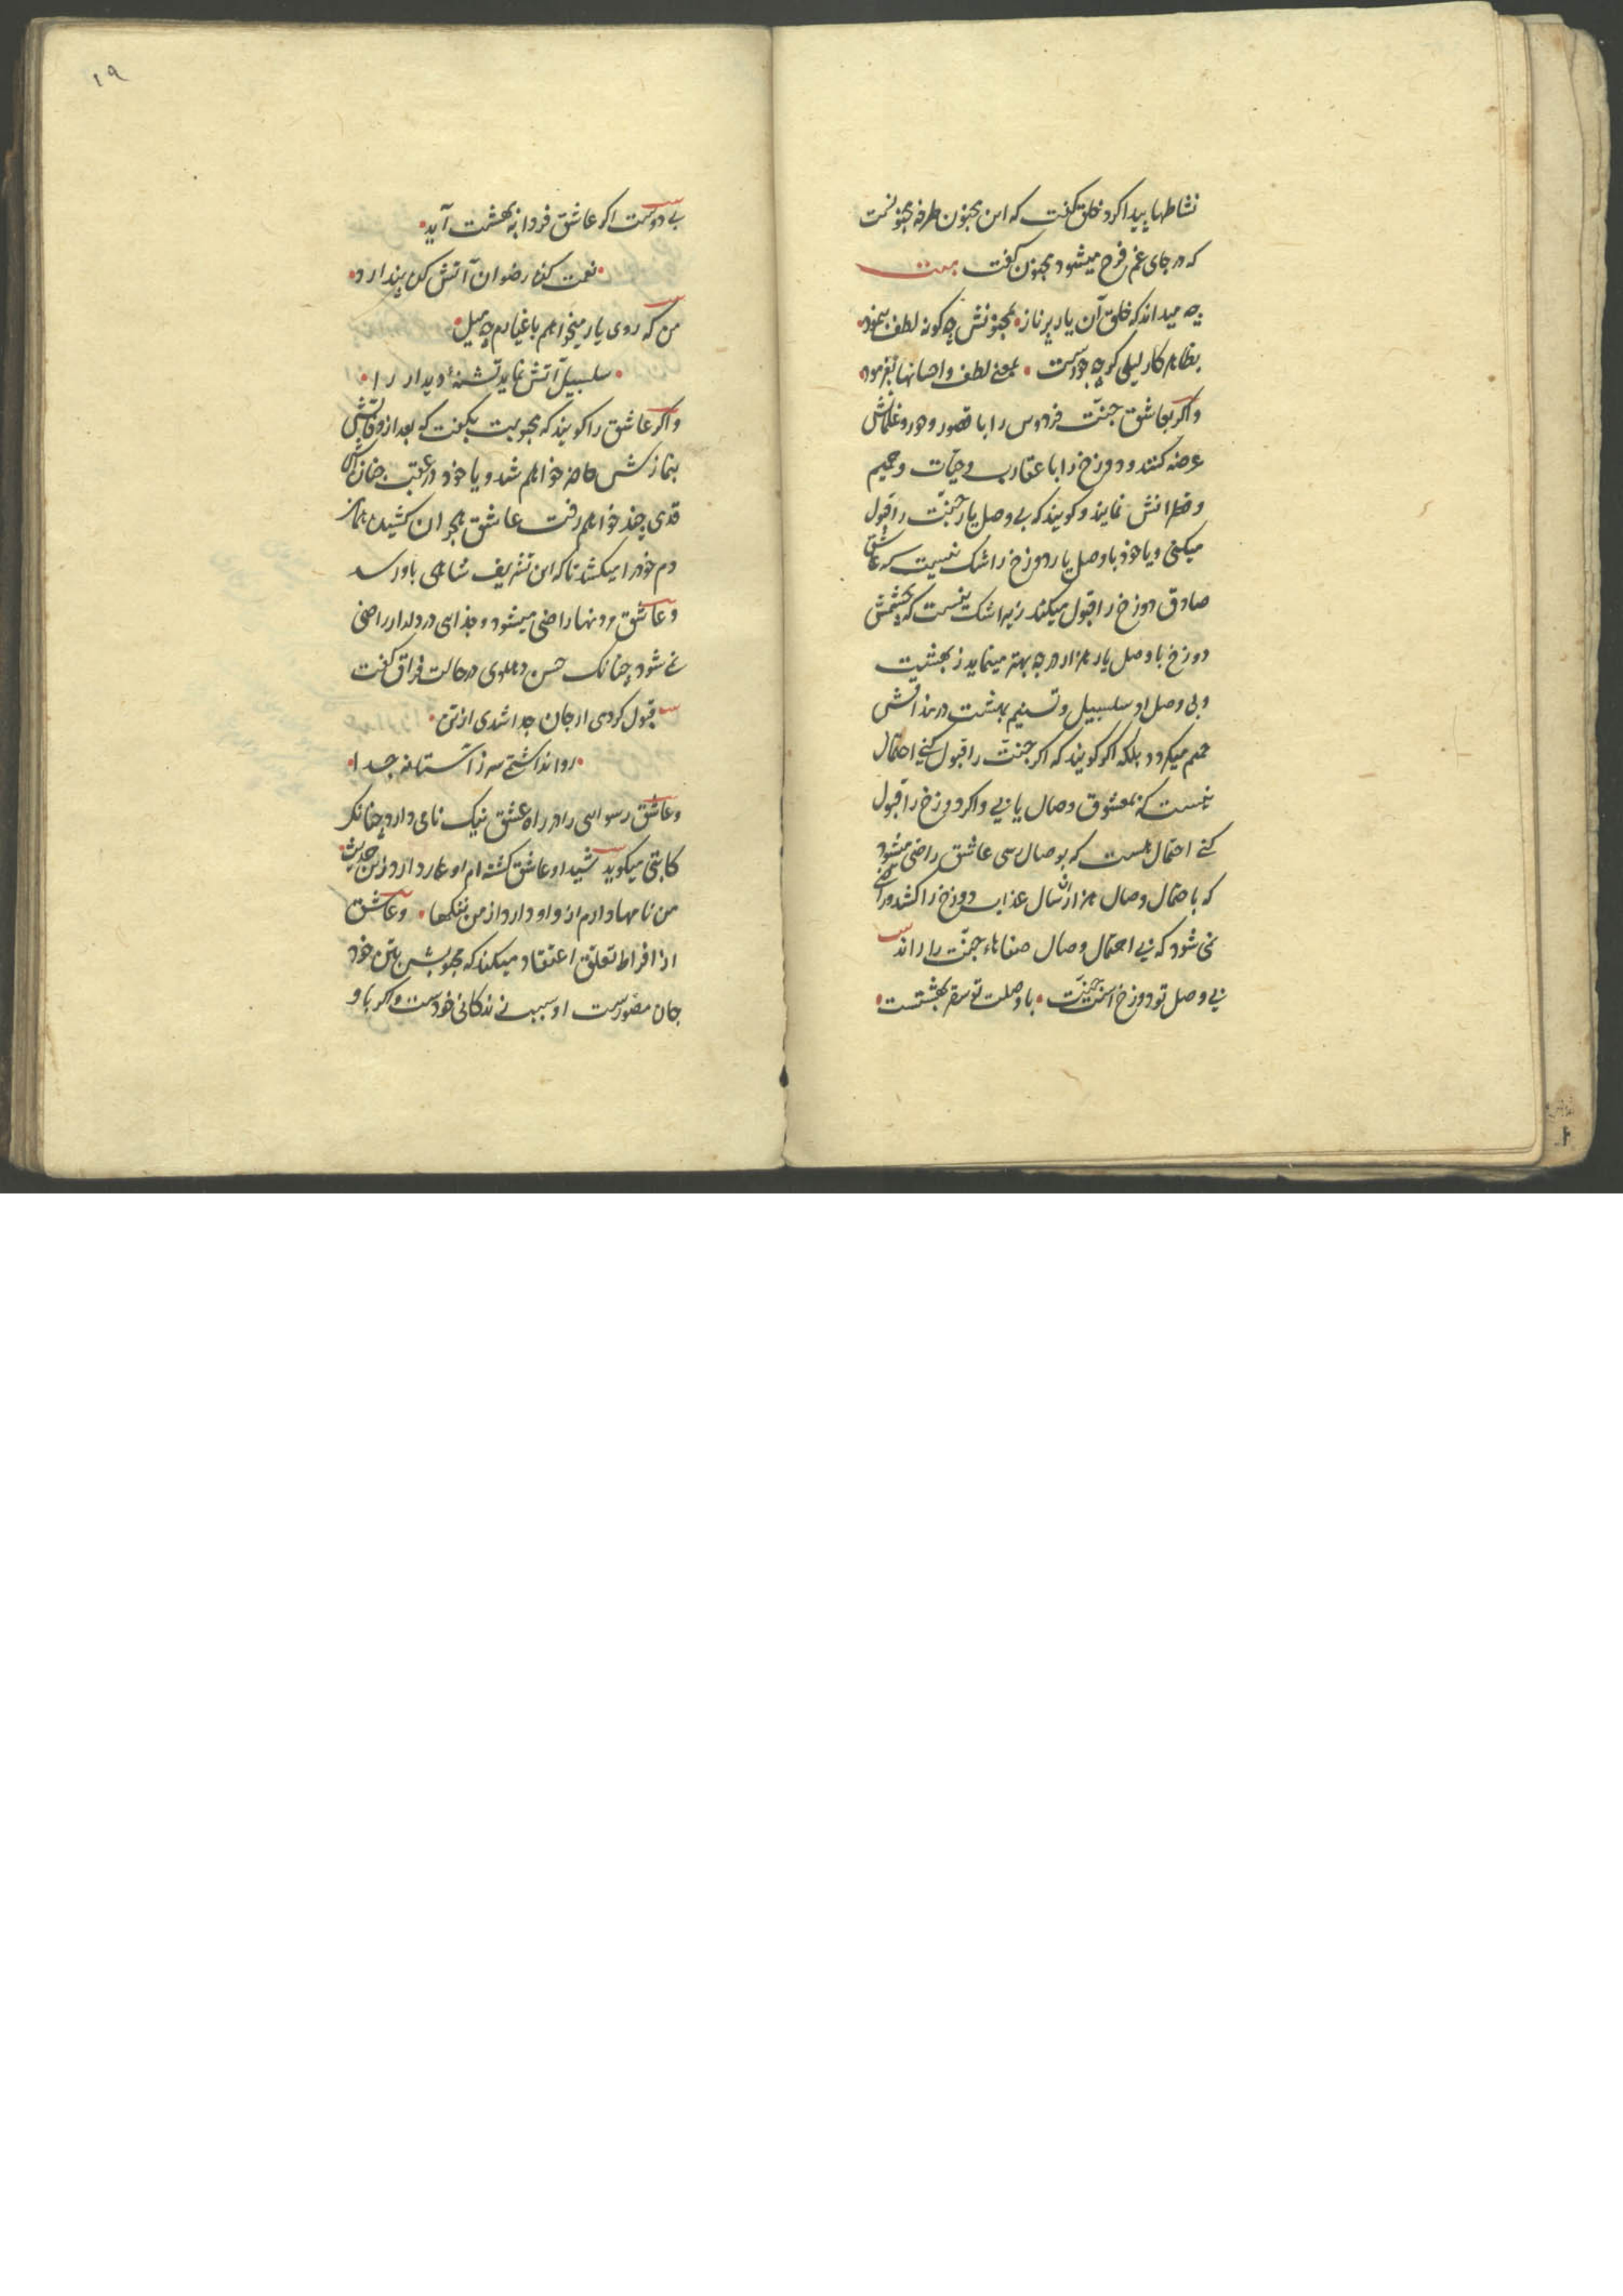 نشاطها پیدا کرد خلق گفت که این مجنون طرفه مجنونست
که در جای غم فرح میشود مجنون گفت بیت
چه میداند که خلق آن یار پر ناز • بمجنونش چه کونه لطف بنمود •
بظاهر کار لیلی کرچه جورست • بمعنی لطف و احسانها بفرمود •
و اکر بعاشق جنّت فردوس را با قصور و حور و غلمانش
عرضه کنند و دوزخ را با عقارب و حیّات و حمیم
و قطرانش نمایند و کویند که بی وصل یار جنّت را قبول
میکنی و یا خود با وصل یار دوزخ را شک نیست که عاشق
صادق دوزخ را قبول میکند زیرا شک نیست که بچشمش
دوزخ با وصل یار هزار درجه بهتر مینماید ز بهشت
و بی وصل او سلسبیل و تسنیم بهشت در مذاقش
حمیم میکردد بلکه اکر کویند که اکر جنّت را قبول کنی احتمال
نیست که بمعشوق وصال یابی و اکر دوزخ را قبول
کنی احتمال هست که بوصال رسی عاشق راضی میشود
که باحتمال وصال هزاران سال عذاب دوزخ را کشد و راضی
نمی شود که بی احتمال وصال صفاهاء جنّت را راند
بی وصل تو دوزخ است جنّت • با وصلت تو سقر بهشتست •
١٩
بی دوست اکر عاشق فردا به بهشت آید •
• نعمت کف رضوان آتش کل پندارد •
من که روی یار میخواهم باغیارم چه میل •
• سلسبیل آتش نماید تشنهٔ دیدار را •
و اکر عاشق را کویند که محبوبت بگفت که بعد از وفاتش
بنمازش حاضر خواهم شد و یا خود در عقب جنازه‌اش
قدمی چند خواهم رفت عاشق هجران کشیده
دم خود را میکشد تا که این تشریف شاهی باو رسد
و عاشق مردنها راضی میشود و بجدایی در دلدار راضی
نمی شود چنانک حسن دهلوی در حالت فراق گفت
قبول کردی از جان جدا شدی از تن •
• روا نداشتی سر ز آستانه جدا •
و عاشق رسوایی را در راه عشق نیک نامی دارد چنانکه
کاتبی میکوید شیدا و عاشق کشته ام او عار دارد زین حدیث
من نامها دارم ازو او دارد از من ننکها • و عاشق
از افراط تعلّق اعتقاد میکند که محبوبش بتن خود
جان مصوّرست او سبب زندکانی خودست و اکر با او